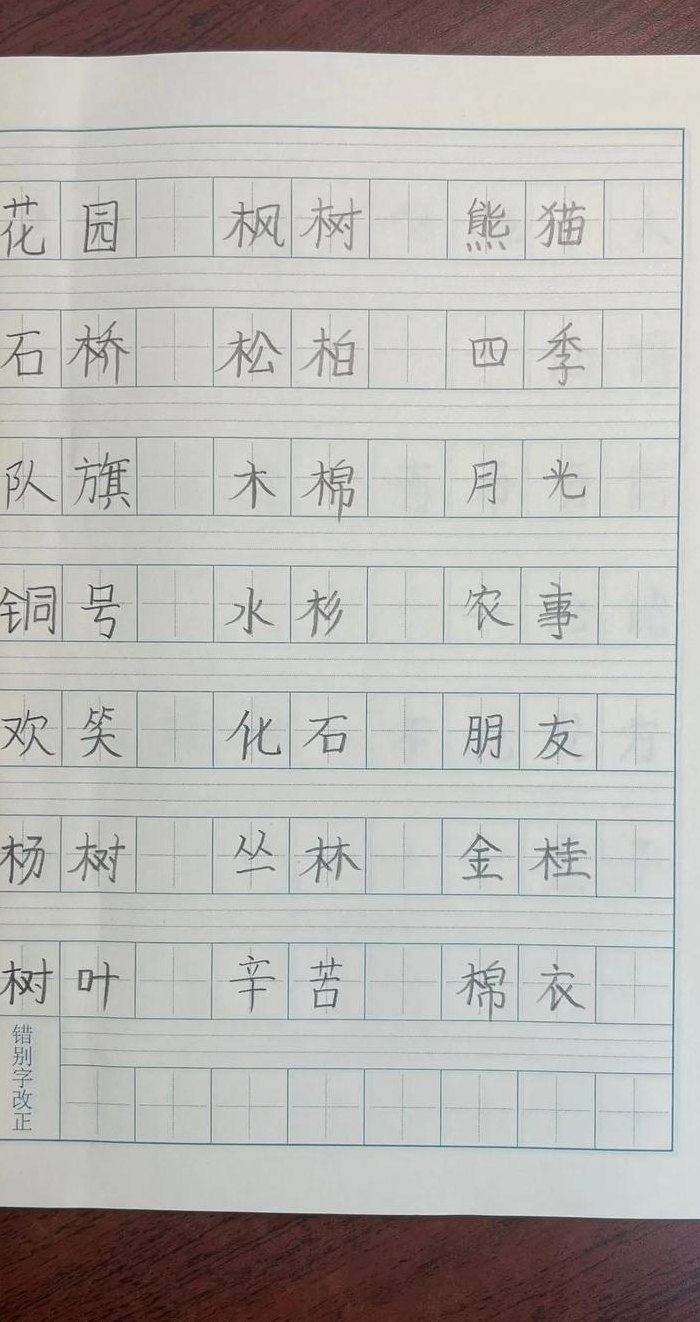 花园 枫树 熊猫
石桥 松柏 四季
队旗 木棉 月光
铜号 水杉 农事
欢笑 化石 朋友
杨树 丛林 金桂
树叶 辛苦 棉衣
错别字改正